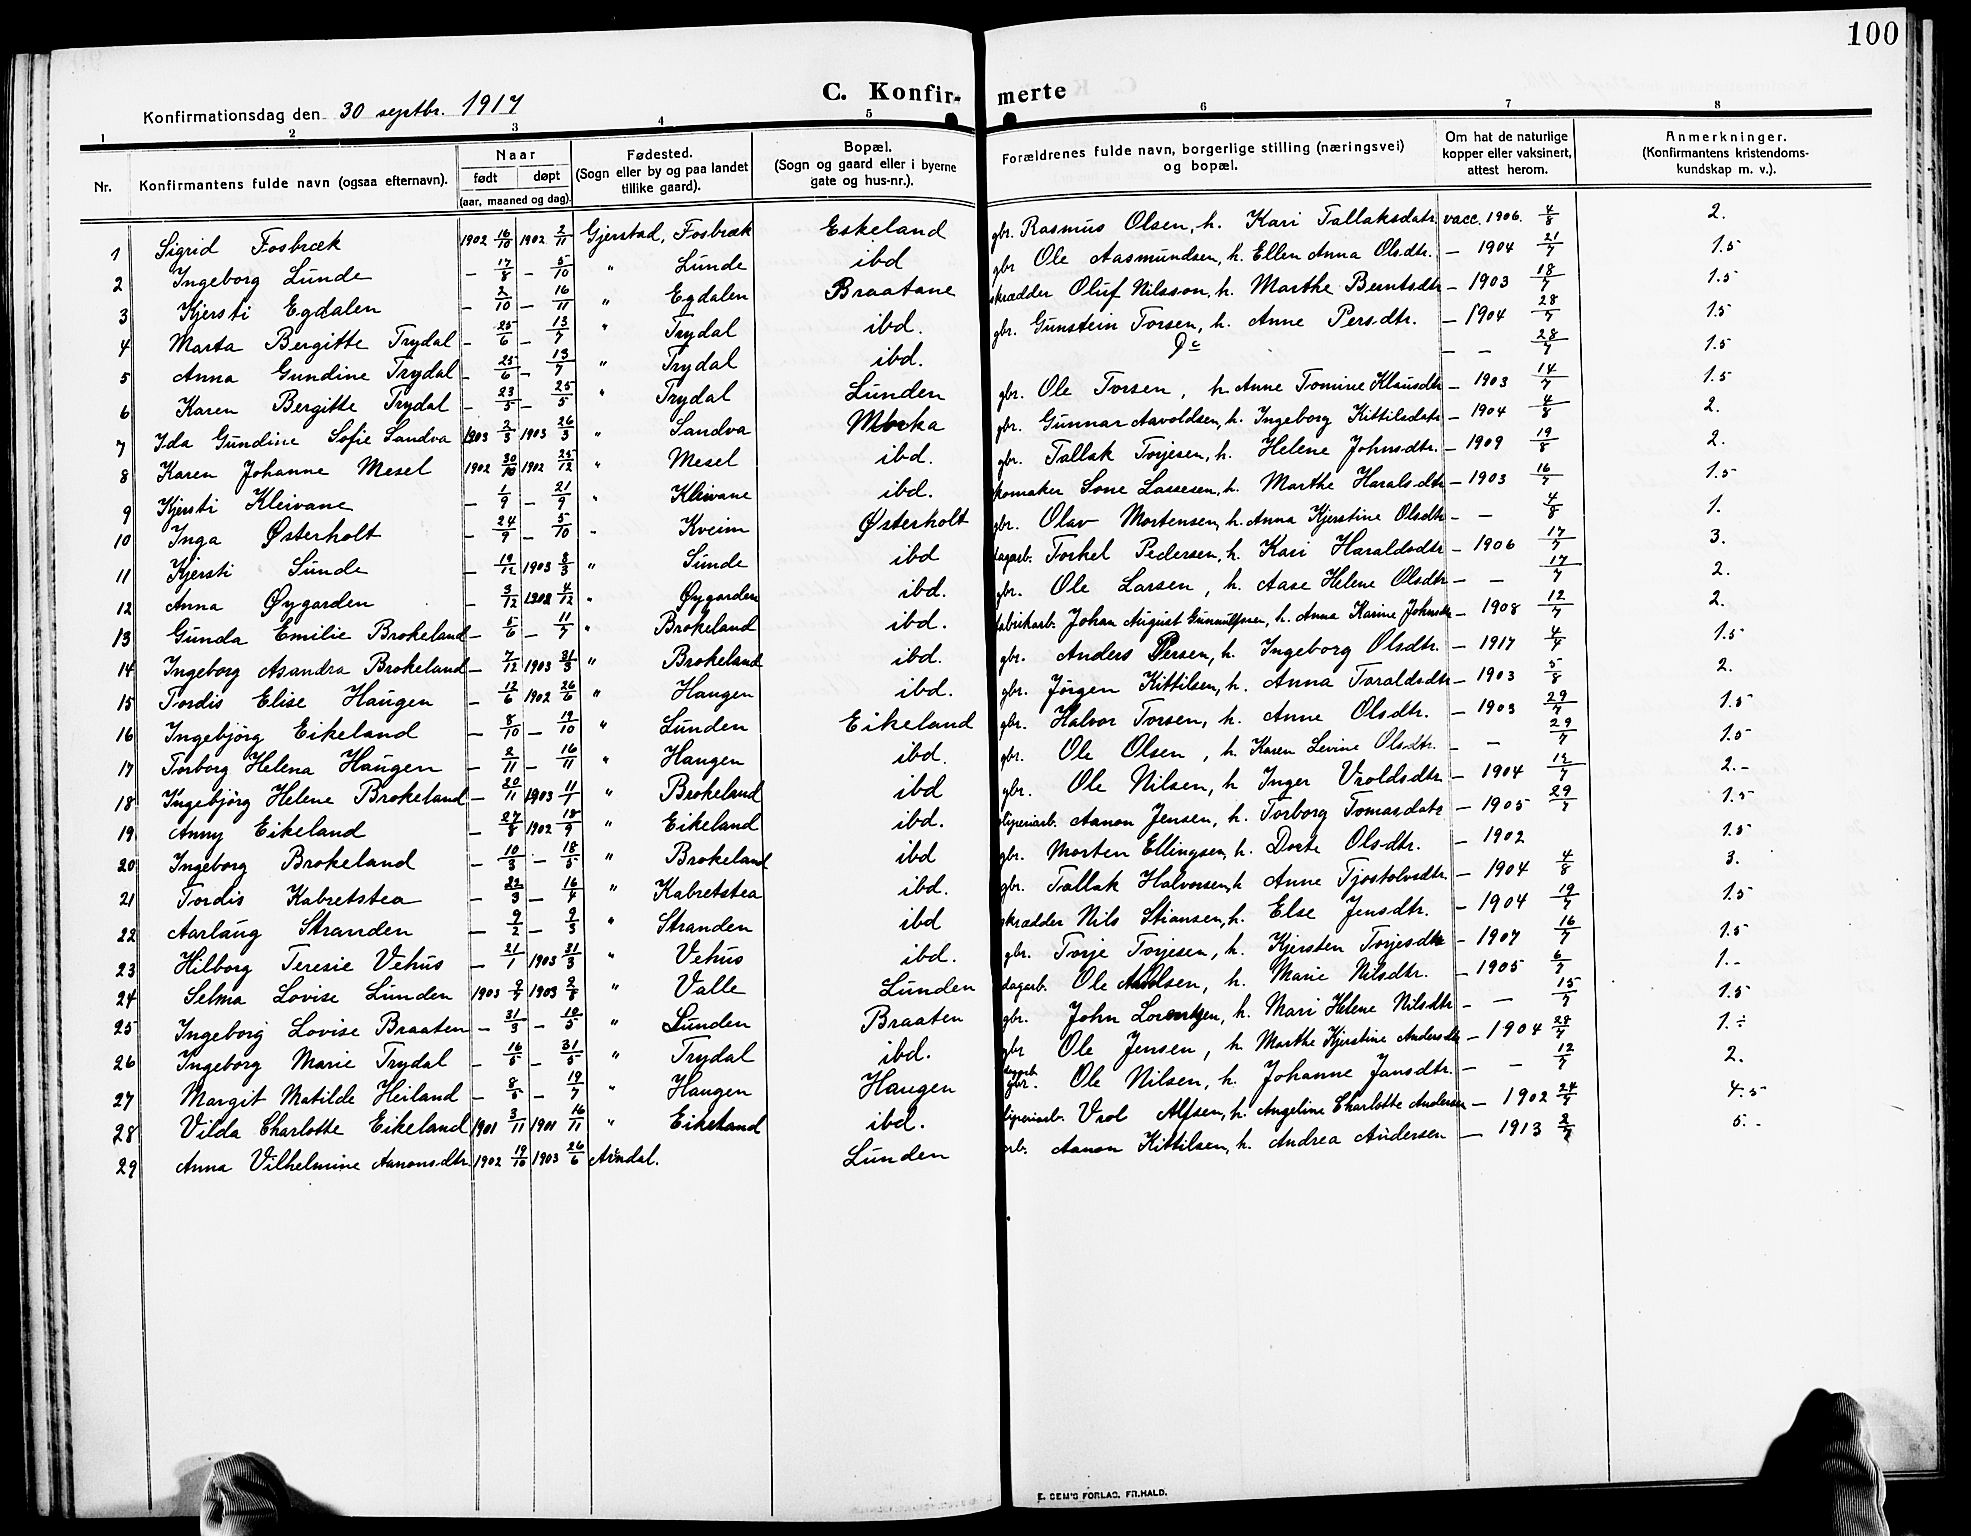 100
C. Konfir- merte
Konfirmationsdag den 30 septbr. 1917
1 2 3 4 5 6 7 8
Nr. Konfirmantens fulde navn (ogsaa efternavn). Naar født døpt (aar, maaned og dag). Fødested. (Sogn eller by og paa landet tillike gaard). Bopæl. (Sogn og gaard eller i byerne gate og hus-nr.). Forældrenes fulde navn, borgerlige stilling (næringsvei) og bopæl. Om hat de naturlige kopper eller vaksinert, attest herom. Anmerkninger. (Konfirmantens kristendoms-kundskap m. v.).
1 Sigrid Fosbræk 1902 16/10 1902 2/11 Gjerstad, Fosbræk Eskeland gbr. Rasmus Olsen, h. Kari Tallaksdatr. vacc. 1906. 4/8 2.
2 Ingeborg Lunde – 17/8 – 5/10 " Lunde ibd gbr Ole Aasmundsen, h. Ellen Anna Olsdtr. – 1904 21/7 1.5
3 Kjersti Egdalen – 2/10 – 16/11 " Egdalen Braatane skrædder Oluf Nilsson, h. Marthe Berntsdtr – 1903 18/7 1.5
4 Marta Bergitte Trydal – 25/6 – 13/7 " Trydal ibd. gbr. Gunstein Torsen, h. Anne Persdtr. – 1904 28/7 1.5
5 Anna Gundine Trydal – 25/6 – 13/7 " Trydal ibd. Do – – 28/7 1.5
6 Karen Bergitte Trydal – 23/5 – 25/5 " Trydal Lunden gbr. Ole Torsen, h. Anne Tomine Klausdtr – 1903 14/7 1.5
7 Ida Gundine Sofie Sandva 1903 2/3 1903 26/3 " Sandva gbr. Gunnar Aavoldsen, h. Ingeborg Kittilsdatr – 1904 4/8 2.
8 Karen Johanne Mesel 1902 30/10 1902 25/12 " Mesel ibd. gbr. Tallak Torjesen, h. Helene Johnsdtr. – 1909 19/8 2.
9 Kjersti Kleivane – 1/9 – 21/9 " Kleivane ibd. skomaker Sone Lassesen, h. Marthe Haralsdtr – 1903 16/7 1.5
10 Inga Østerholt – 24/9 – 5/10 " Kveim Østerholt gbr. Olav Mortensen, h. Anna Kjerstine Olsdtr – – 4/8 1.
11 Kjersti Sunde – 19/12 1903 8/3 " Sunde ibd dagarb. Torkel Pedersen, h. Kari Haraldsdtr – 1906 17/7 3.
12 Anna Øygarden – 3/12 1902 4/12 " Øygarden ibd. gbr. Ole Larsen, h. Aase Helene Olsdtr – – 17/7 2.
13 Gunda Emilie Brokeland – 5/6 – 11/7 " Brokeland ibd. fabrikarb. Johan August h. Anna Karine Johnsdtr – 1908 12/7 2.
14 Ingeborg Asandra Brokeland – 7/12 1903 31/3 " Brokeland ibd. gbr. Anders Persen, h. Ingeborg Olsdtr. – 1917 4/4 1.5
15 Tordis Elise Haugen – 12/6 1902 26/6 " Haugen ibd. gbr. Jørgen Kittilsen, h. Anna Toraldsdtr – 1903 5/8 2.
16 Ingebjörg Eikeland – 8/10 – 19/10 " Lunden Eikeland gbr. Halvor Torsen, h. Anne Olsdtr. – 1903 29/7 1.5
17 Torborg Helena Haugen – 2/11 – 16/11 " Haugen ibd. gbr. Ole Olsen, h. Karen Levine Olsdtr. – – 29/7 1.5
18 Ingebjörg Helene Brokeland – 20/11 1903 11/1 " Brokeland ibd gbr. Ole Nilsen, h. Inger Vroldsdtr. – 1904 12/7 2.-
19 Anny Eikeland – 27/8 1902 18/9 " Eikeland ibd. sliperiarb. Aanon Jensen, h. Torborg Tomasdatr – 1905 29/7 1.5
20 Ingeborg Brokeland – 10/3 – 18/5 " Brokeland ibd gbr. Morten Ellingsen, h. Dorte Olsdtr. – 1902 1.5
21 Tordis Kabretstea – 22/3 – 16/4 " Kabretstea ibd. gbr. Tallak Halvorsen, h Anne Tjostolvsdtr – 1904 4/8 3.
22 Aarlaug Stranden – 9/2 – 9/3 " Stranden ibd skrædder Nils Stiansen, h. Else Jensdtr. – 1904 19/7 1.5
23 Hilborg Teresie Vehus – 21/1 1903 31/3 " Vehus ibd. gbr. Torje Torjesen, h. Kjersten Torjesdtr – 1907 16/7 1.5
24 Selma Lovise Lunden 1903 9/7 1903 2/8 " Valle Lunden dagarb. Ole h. Marie Nilsdtr. – 1905 6/7 1.-
25 Ingeborg Lovise Braaten – 31/3 – 10/5 " Lunden Braaten gbr. John Lorentzen, h. Mari Helene Nilsdtr – – 15/7 1.5
26 Ingeborg Marie Trydal – 16/5 – 31/5 " Trydal ibd. gbr Ole Jensen, h. Marthe Kjerstine Andersdtr – 1904 28/7 1.÷
27 Margit Matilde Heiland – 8/5 – 19/7 " Haugen Haugen gbr. Ole Nilsen, h. Johanne Jansdtr. – – 12/7 2.
28 Vilda Charlotte Eikeland 1901 3/11 1901 16/11 " Eikeland ibd. sliperiarb. Vrol Alfsen, h. Angeline Charlotte Andersen – 1902 24/7 4.5
29 Anna Vilhelmine Aanonsdtr 1902 19/10 1903 26/6 Arndal. Lunden arb. Aanon Kittilsen, h. Andrea Andersen – 1913 2/7 5.-
E. SEM'S FORLAG, FR.HALD.